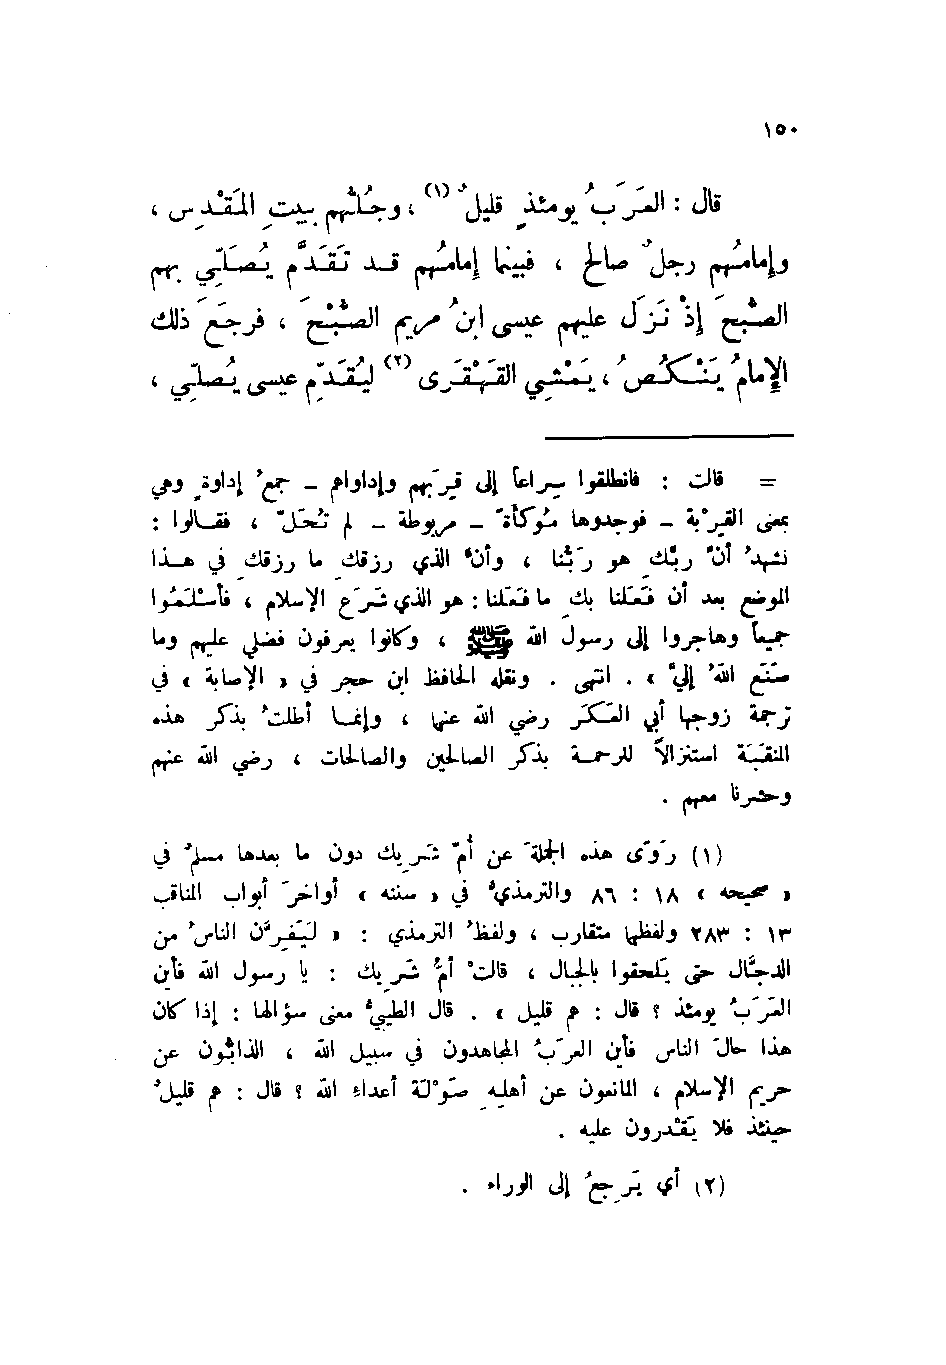 ١٥٠
قال : العَرَبُ يومئذٍ قليلٌ (١) ، وجُلُّهم ببيتِ المَقْدِس ،
وإمامُهم رجلٌ صالح ، فبينما إمامُهم قد تَقَدَّم يُصَلّي بهم
الصُّبْحَ إذْ نَزَل عليهم عيسى ابنُ مريم الصُّبْحَ ، فرجَعَ ذلك
الإمامُ يَنْكُصُ ، يَمْشي القَهْقَرى (٢) ليُقَدِّم عيسى يُصلّي ،
= قالت : فانطلقوا سِراعاً إلى قِرَبهم وإداواهم – جمعُ إداوةٍ وهي
بمعنى القِرْبة – فوجدوها مُوكأةً – مربوطة – لم تُحَلّ ، فقالوا :
نشهدُ أنَّ ربَّكِ هو رَبُّنا ، وأنَّ الذي رزقكِ ما رزقكِ في هذا
الموضع بعد أن فَعَلنا بكِ ما فَعَلنا : هو الذي شَرَع الإسلام ، فأسْلَمُوا
جميعاً وهاجروا إلى رسول الله ﷺ ، وكانوا يعرفون فضلي عليهم وما
صَنَع اللهُ إليَّ » . انتهى . ونقله الحافظ ابن حجر في « الإصابة » في
ترجمة زوجها أبي العَكَر رضي الله عنها ، وإنما أطلتُ بذكر هذه
المنقَبَة استنزالاً للرحمة بذكر الصالحين والصالحات ، رضي الله عنهم
وحشرنا معهم .
(١) رَوَى هذه الجملةَ عن أمّ شَرِيك دون ما بعدها مسلمٌ في
« صحيحه » ١٨ : ٨٦ والترمذيُّ في « سننه » أواخرَ أبواب المناقب
١٣ : ٢٨٣ ولفظهما متقارب ، ولفظُ الترمذي : « لَيَفِرَّن الناسُ من
الدجَّال حتى يَلحقوا بالجبال ، قالت أمُّ شَرِيك : يا رسول الله فأين
العَرَبُ يومئذ ؟ قال : هم قليل » . قال الطيبيُّ معنى سؤالها : إذا كان
هذا حالَ الناس فأين العرَبُ المجاهدون في سبيل الله ، الذابُّون عن
حريم الإسلام ، المانعون عن أهلِهِ صَوْلَةَ أعداءِ الله ؟ قال : هم قليلٌ
حينئذ فلا يَقْدرون عليه .
(٢) أي يَرجعُ إلى الوراء .